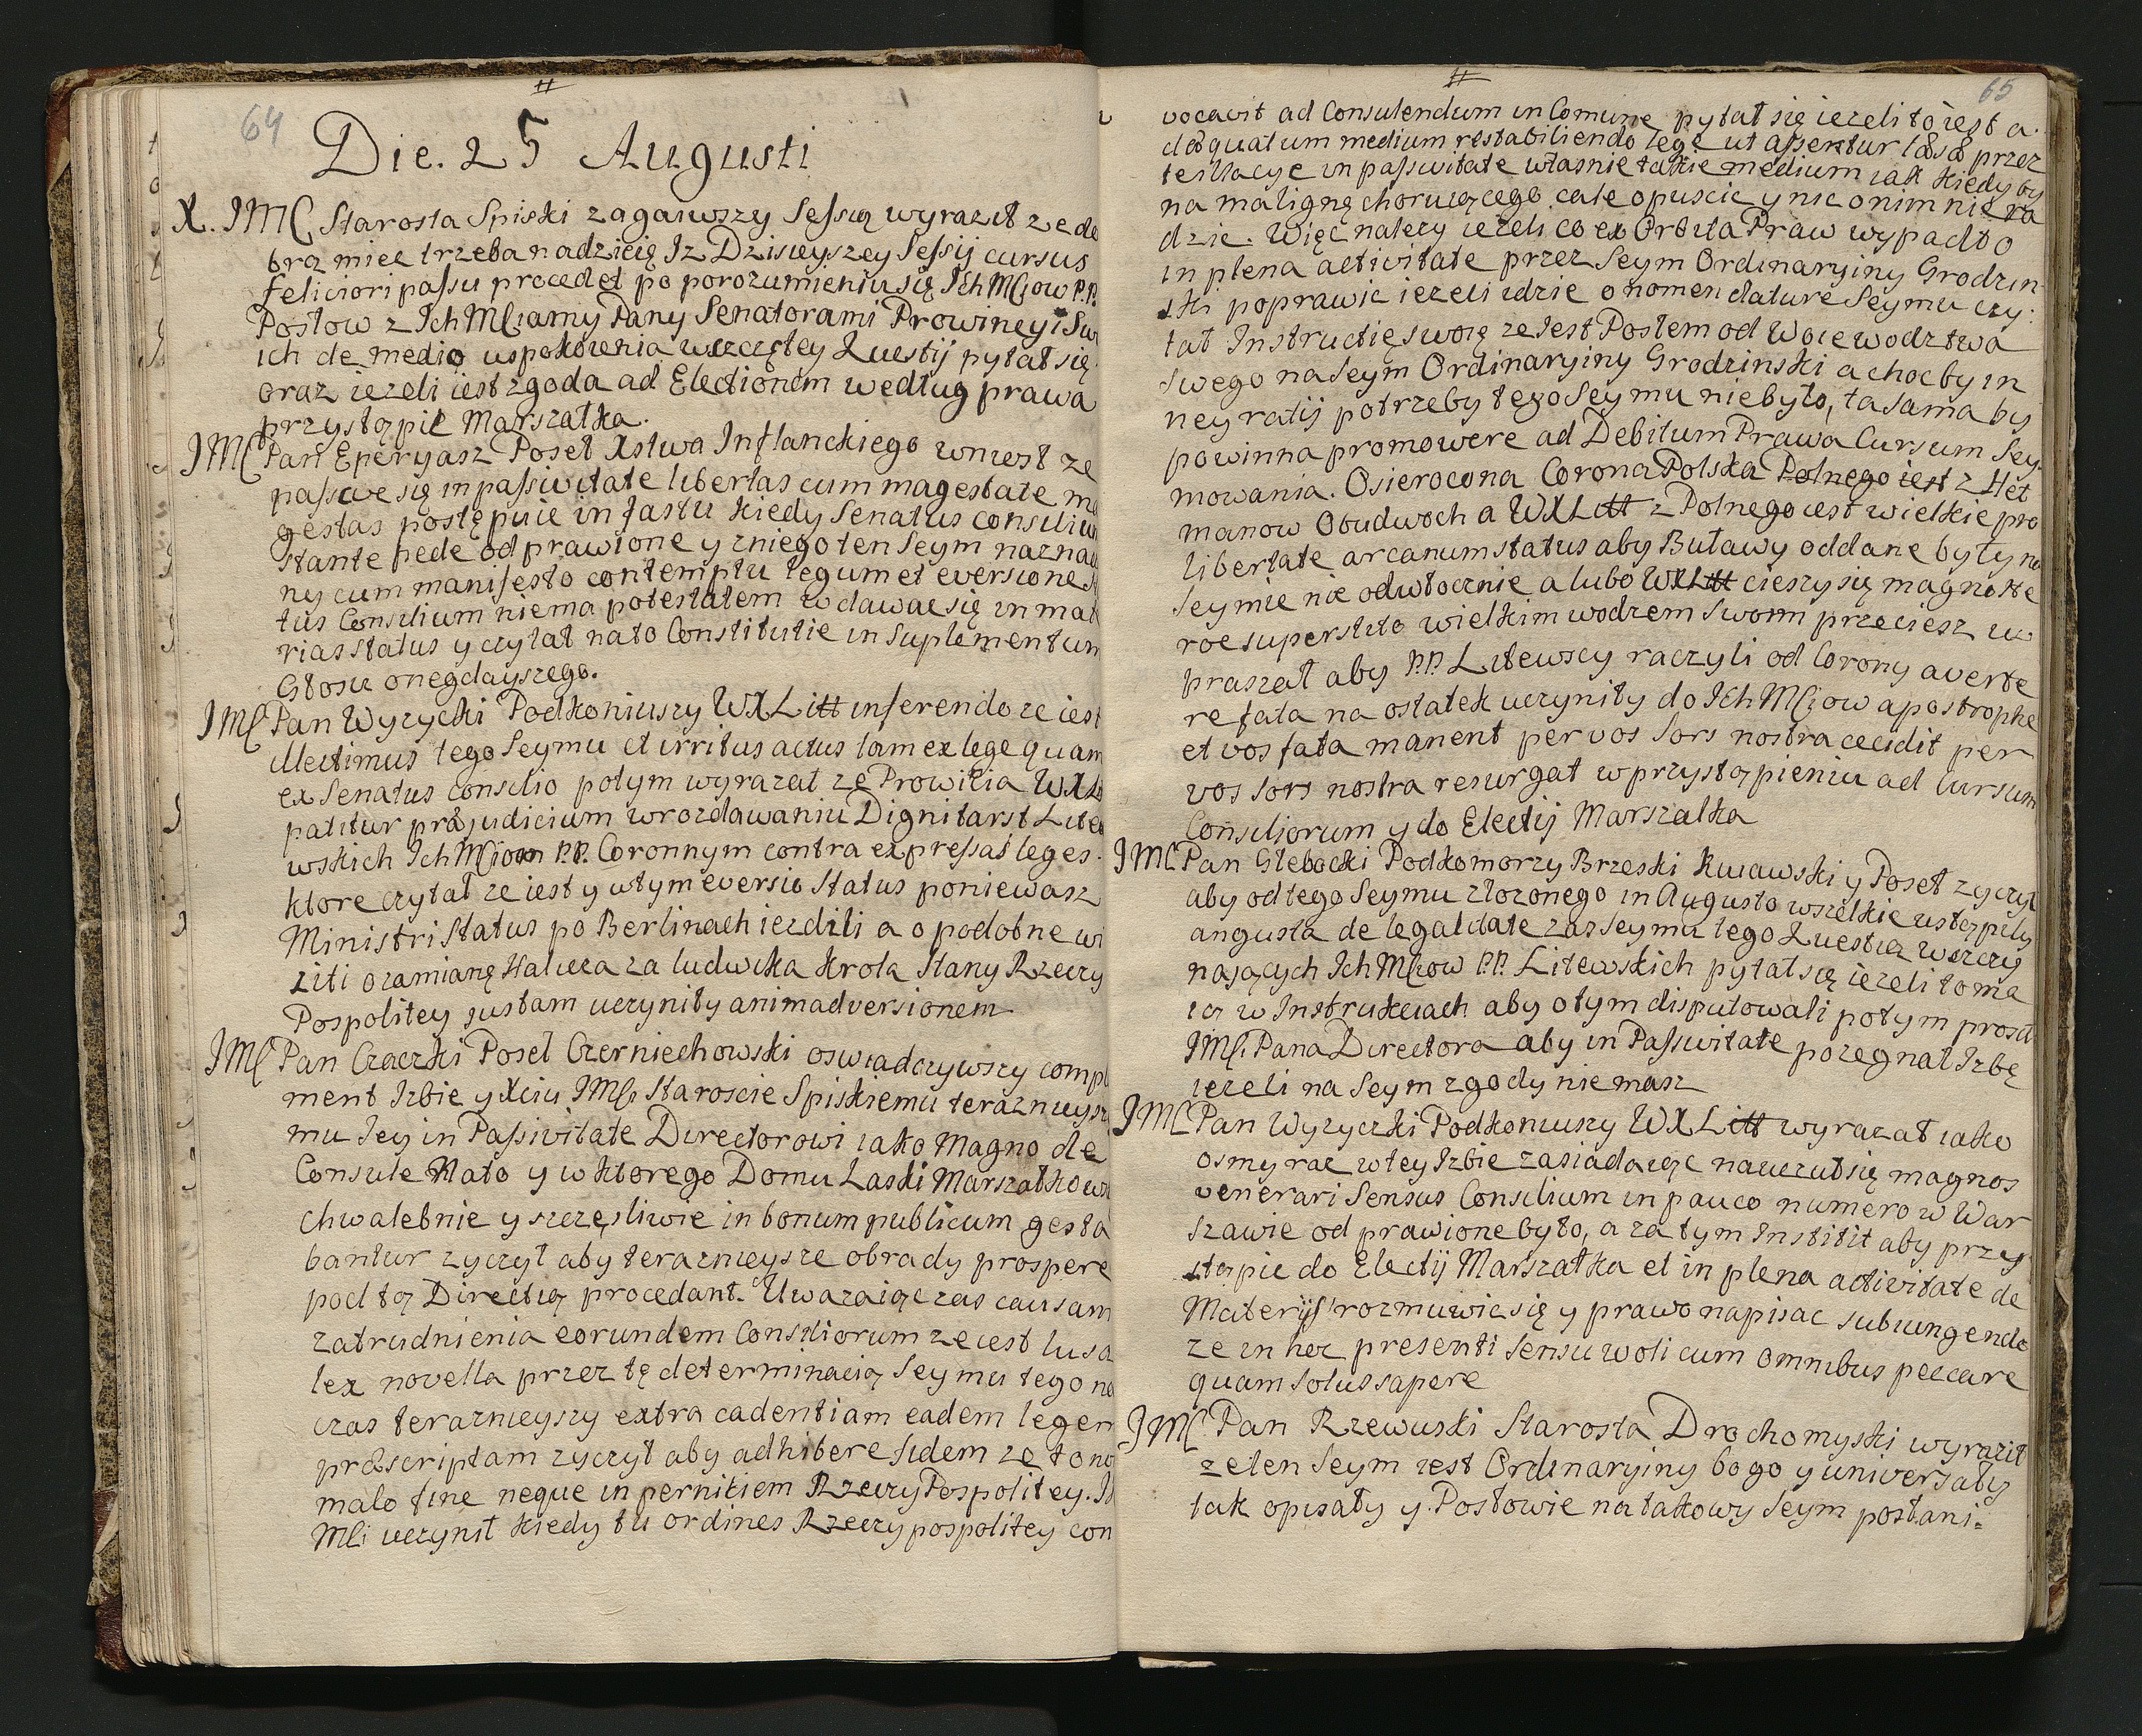 64
Die. 25 Augusti
X. JMC Starosta Spiski zagaiwszy Sessią wyraził ze do
brą miec trzeba nadzieię Iz Dzisieyszey Sessij cursus
feliciori passu procedet po porozumieniu się Ich MCiow P.P.
Posłow z Ich MCiamy Pany Senatorami Prowincyi Sw
ich de medio uspokoienia wszczętey Kwestij pytał się
oraz iezeli iest zgoda ad Electionem według prawa
przystąpic Marszałka.
JMC Pan Eperyasz Poseł Xstwa Inflanckiego wniosł ze
passwe się in passivitate libertas cum magestate ma
gestas postępuie in fastu kiedy Senatus consilium
stante pede odprawione y zniego ten Seym naznac
ny cum manifesto contemptu legum et eversione
tus Consilium niema potestatem wdawac się in mat
rias status y czytał nato Constitutie in Suplementum
Głosu onegdayszego.
JMC Pan Wyzycki Podkoniuszy WXLitt inferendo ze iest
illegitimus tego Seymu et irritus actus tam ex lege quam
ex Senatus consilio potym wyrazał ze Prowicia WXL
patitur præjudicium w rozdawaniu Dignitarst Lite
wskich Ich MCiom P.P. Coronnym contra expressas leges.
ktore czytał ze iest y wtym eversio Status poniewasz
Ministri Status po Berlinach iezdili a o podobne wi
ziti o zamianę Halicza za ludwika krola Stany Rzeczy
Pospolitey justam uczyniły animadversionem
JMC Pan Czaczki Poseł Czerniechowski oswiadczywszy compl
ment Izbie y Xciu JMC Staroscie Spiskiemu teraznieysz
mu Jey in Passivitate Directorowi iako Magno de
Consule Nato y w ktorego Domu Laski Marszałkows
chwalebnie y szczęsliwie in bonum publicum gesta
bantur zyczył aby teraznieysze obrady prospere
pod tą Directią procedant. Uwazaiąc zas causam
zatrudnienia eorundem Consiliorum ze iest lusa
lex novella przez tę determinacią Seymu tego na
czas teraznieyszy extra cadentiam eadem legem
præscriptam zyczył aby adhibere fidem ze to no
malo fine neque in pernitiem Rzeczy Pospolitey. J
MCi uczynił kiedy tu ordines Rzeczypospolitey con
65
vocavit ad Consulendum in Comune pytał się iezeli to iest a.
dæquatum medium restabiliendo lege ut asseritur læsa przez
tesllacye in passivitate własnie takie medium iak kiedy by
na malignę choruiącego cale opuscic y nic o nim nie ra
dzic. Więc nalezy iezeli co ex Orbita Praw wypadło
in plena activitate przez Seym Ordinaryiny Grodzin
ski poprawic iezeli idzie o nomenclature Seymu czy:
tał Instructię swoię ze Iest Posłem od Woiewodztwa
swego na Seym Ordinaryiny Grodzinski a chocby in
ney ratij potrzeby tego Seymu niebyło, ta sama by
powinna promowere ad Debitum Prawa Cursum Sey
mowania. Osierocona Corona Polska Polnego iest z Het
manow Obudwoch a WXLitt z Polnego iest wielkie pro
libertate arcanum status aby Buławy oddane były na
Seymie nie odwłocznie a lubo WXLitt cieszy się magno He
roe superstite wielkim wodzem swoim przeciesz u
praszał aby P.P. Litewscy raczyli od Corony averte
re fata na ostatek uczyniły do Ich MCiow apostrophe
et vos fata manent per vos Sors nostra cecidit per
vos sors nostra resurgat w przystąpieniu ad Cursum
Consiliorum y do Electij Marszałka
JMC Pan Głebocki Podkomorzy Brzeski Kuiawski y Poseł zyczył
aby od tego Seymu złozonego in Augusto wszelkie ustąpiły
angusta de legalitate zas Seymu tego Kwestią wszczy
naiących Ich MCiow P.P. Litewskich pytał się iezeli to ma
ią w Instrukciach aby o tym disputowali potym prosił
JMC. Pana Directora aby in Passivitate pozegnał Izbę
iezeli na Seym zgody nie masz
JMC Pan Wyzyczki Podkoniuszy WXLitt wyrazał iako
osmy raz w tey Izbie zasiadaiąc nauczał się magnos
venerari Sensus Consilium in pauco numero w War
szawie odprawione było, a za tym Institit aby przy
stąpic do Electij Marszałka et in plena activitate de
Materijs rozmuwic się y prawo napisac subiungendo
ze in hoc presenti Sensu woli cum omnibus peccare
quam solus sapere
JMC Pan Rzewuski Starosta Drochomyski wyraził
ze ten Seym iest Ordinaryiny bo go y uniwersały
tak opisały y Posłowie na takowy Seym posłani=